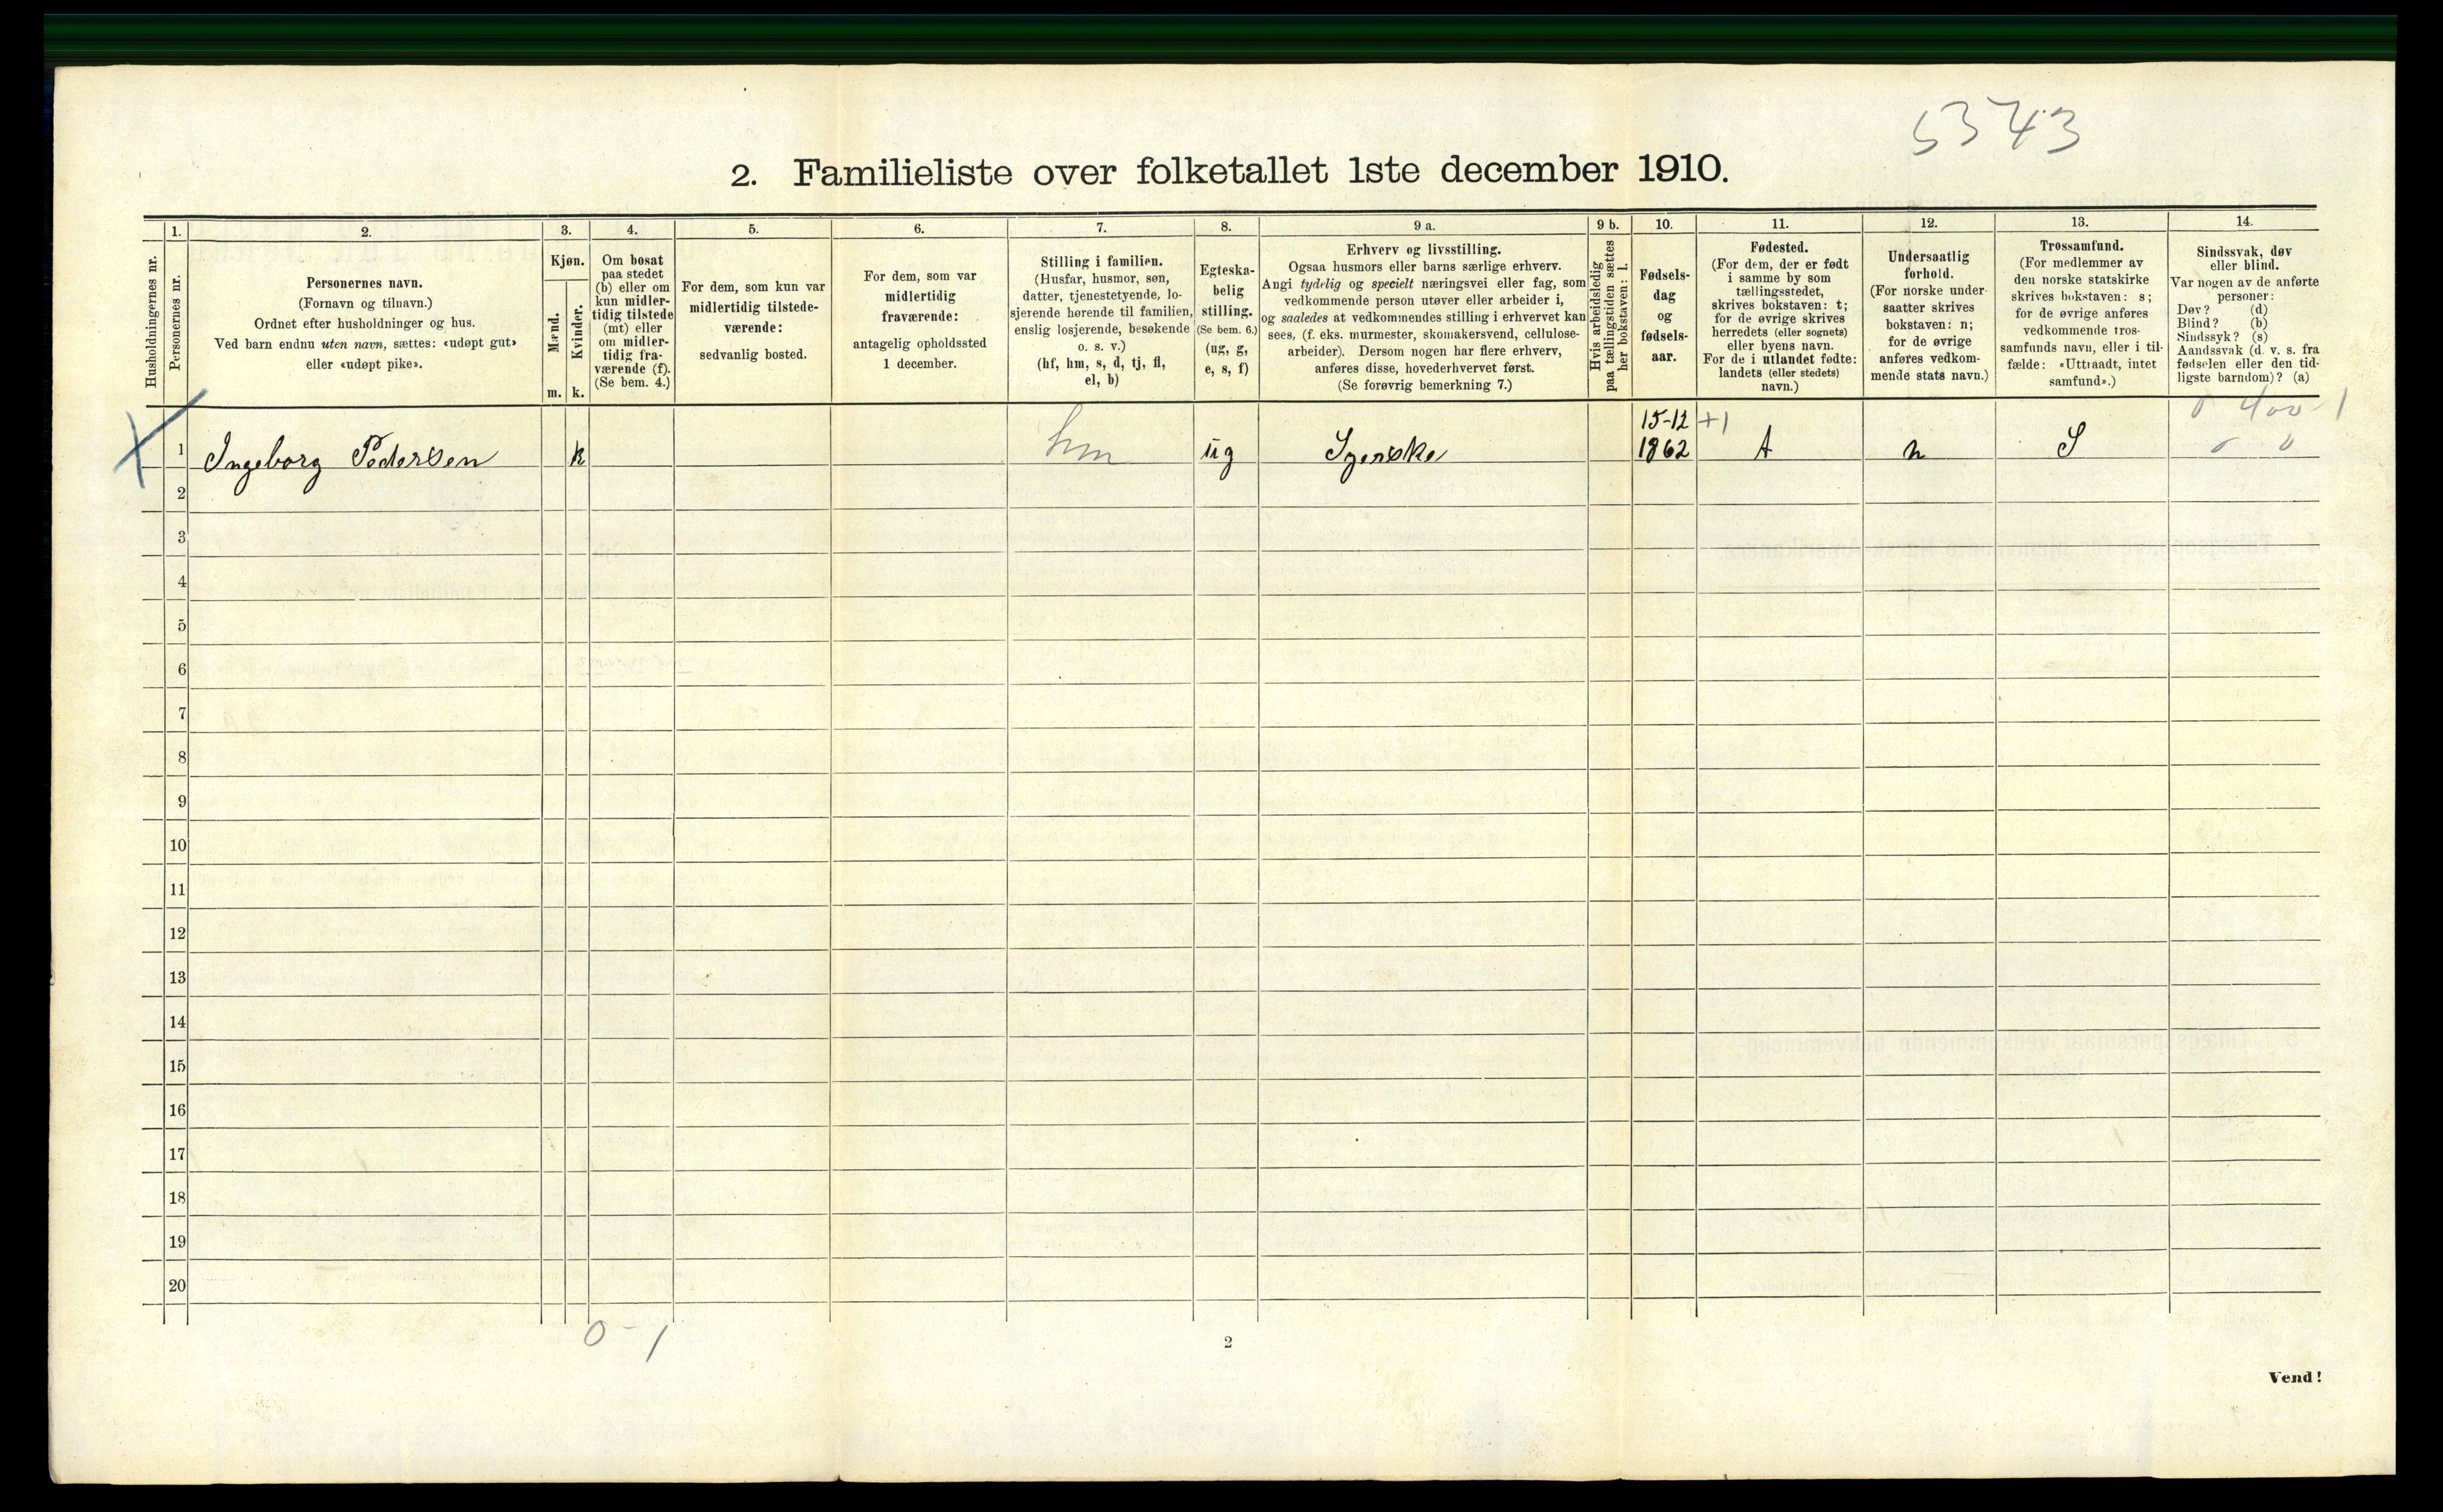 5343
2. Familieliste over folketallet 1ste december 1910.
Husholdningernes nr.
1.
Personernes nr.
2.
Personernes navn.
(Fornavn og tilnavn.)
Ordnet efter husholdninger og hus.
Ved barn endnu uten navn, sættes: «udøpt gut»
eller «udøpt pike».
3.
Kjøn.
Mænd.
Kvinder.
m. k.
4.
Om bosat
paa stedet
(b) eller om
kun midler-
tidig tilstede
(mt) eller
om midler-
tidig fra-
værende (f).
(Se bem. 4.)
5.
For dem, som kun var
midlertidig tilstede-
værende:
sedvanlig bosted.
6.
For dem, som var
midlertidig
fraværende:
antagelig opholdssted
1 december.
7.
Stilling i familien.
(Husfar, husmor, søn,
datter, tjenestetyende, lo-
sjerende hørende til familien,
enslig losjerende, besøkende
o. s. v.)
(hf, hm, s, d, tj, fl,
el, b)
8.
Egteska-
belig
stilling.
(Se bem. 6.)
(ug, g,
e, s, f)
9 a.
Erhverv og livsstilling.
Ogsaa husmors eller barns særlige erhverv.
Angi tydelig og specielt næringsvei eller fag, som
vedkommende person utøver eller arbeider i,
og saaledes at vedkommendes stilling i erhvervet kan
sees, (f. eks. murmester, skomakersvend, cellulose-
arbeider). Dersom nogen har flere erhverv,
anføres disse, hovederhvervet først.
(Se forøvrig bemerkning 7.)
9 b.
Hvis arbeidsledig
paa tællingstiden sættes
her bokstaven: l.
10.
Fødsels-
dag
og
fødsels-
aar.
11.
Fødested.
(For dem, der er født
i samme by som
tællingsstedet,
skrives bokstaven: t;
for de øvrige skrives
herredets (eller sognets)
eller byens navn.
For de i utlandet fødte:
landets (eller stedets)
navn.)
12.
Undersaatlig
forhold.
(For norske under-
saatter skrives
bokstaven: n;
for de øvrige
anføres vedkom-
mende stats navn.)
13.
Trossamfund.
(For medlemmer av
den norske statskirke
skrives bokstaven: s;
for de øvrige anføres
vedkommende tros-
samfunds navn, eller i til-
fælde: «Uttraadt, intet
samfund».)
14.
Sindssvak, døv
eller blind.
Var nogen av de anførte
personer:
Døv? (d)
Blind? (b)
Sindssyk? (s)
Aandssvak (d. v. s. fra
fødselen eller den tid-
ligste barndom)? (a)
15-12 +1
1 Ingeborg Pedersen k hm ug Syerske 1862 t n S 0 0
2
3
4
5
6
7
8
9
10
11
12
13
14
15
16
17
18
19
20
0-1
2
Vend!